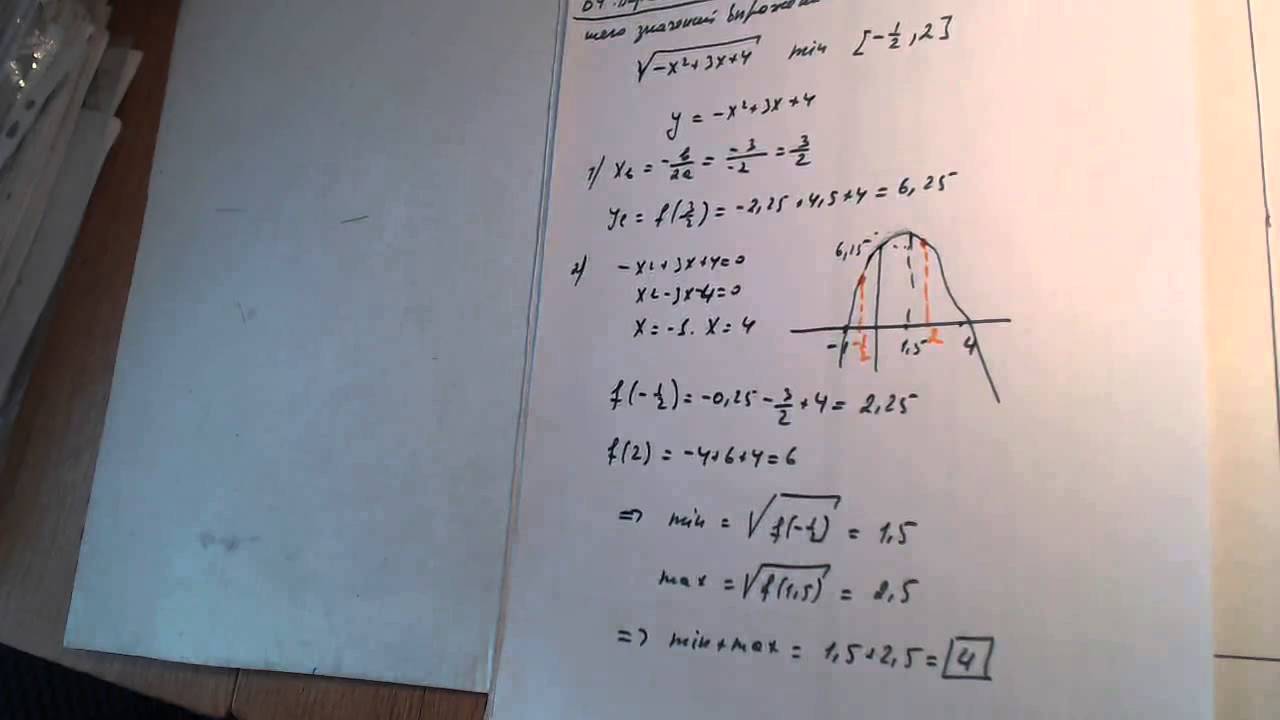 шего значений выражен
√-x²+3x+4 min [-1/2, 2]
y = -x²+3x+4
1) xв = -b/2a = -3/-2 = 3/2
yв = f(3/2) = -2,25+4,5+4 = 6,25
2) -x²+3x+4=0
x²-3x-4=0
x=-1. x=4
6,25
-1 -1/2 1,5 2 4
f(-1/2) = -0,25-3/2+4 = 2,25
f(2) = -4+6+4=6
=> min = √f(-1/2) = 1,5
max = √f(1,5) = 2,5
=> min+max = 1,5+2,5= 4